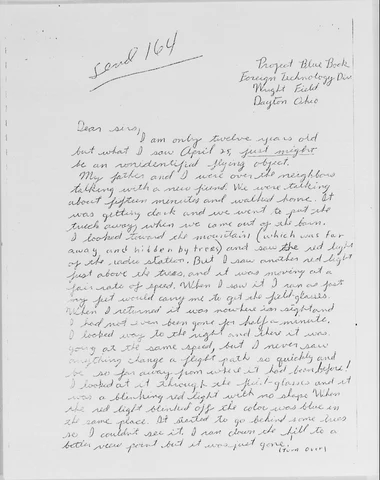 send 164
Project Blue Book
Foreign Technology Div
Wright Field
Dayton Ohio
Dear sirs,
I am only twelve years old
but what I saw April 25, just might
be an nonidentified flying object.
My father and I were over the neighbors
talking with a new friend. We were talking
about fifteen minutes and walked home. It
was getting dark and we went to put the
truck away when we came out of the barn.
I looked toward the mountains (which are far
away and hidden by trees) and saw the red light
of the radio station. But I saw another red light
just above the trees, and it was moving at a
fair rate of speed. When I saw it I ran as fast
my feet would carry me to get the field glasses.
When I returned it was nowhere in sight and
I had not even been gone for half a minute.
I looked way to the right and there it was
going at the same speed, but I never saw
anything change a flight path so quickly and
be so far away from where it had been before!
I looked at it through the field glasses and it
was a blinking red light with no shape. When
the red light blinked off the color was blue in
the same place. It started to go behind some trees
so I couldn't see it. I ran down the hill to a
better view point but it was just gone.
(turn over)